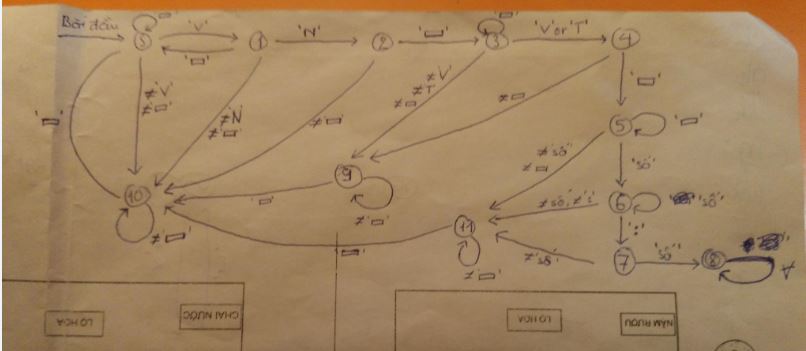 Bắt đầu
'▭'
0 'V' 1 'N' 2 '▭' 3 'V' or 'T' 4
'▭'
'▭'
≠'V'
≠'▭'
≠'N'
≠'▭'
≠'▭'
≠'V'
≠'T'
≠▭
≠▭
'▭'
5 '▭'
≠'số'
≠▭
'số'
'▭'
10
9
'▭'
≠'▭'
≠'▭'
6 'số'
≠'số', ≠':'
':'
11
≠'▭'
'▭'
7 'số' 8 ∀
≠'số'
LỌ HOA
CHAI NƯỚC
LỌ HOA
NẮM RƯỢU